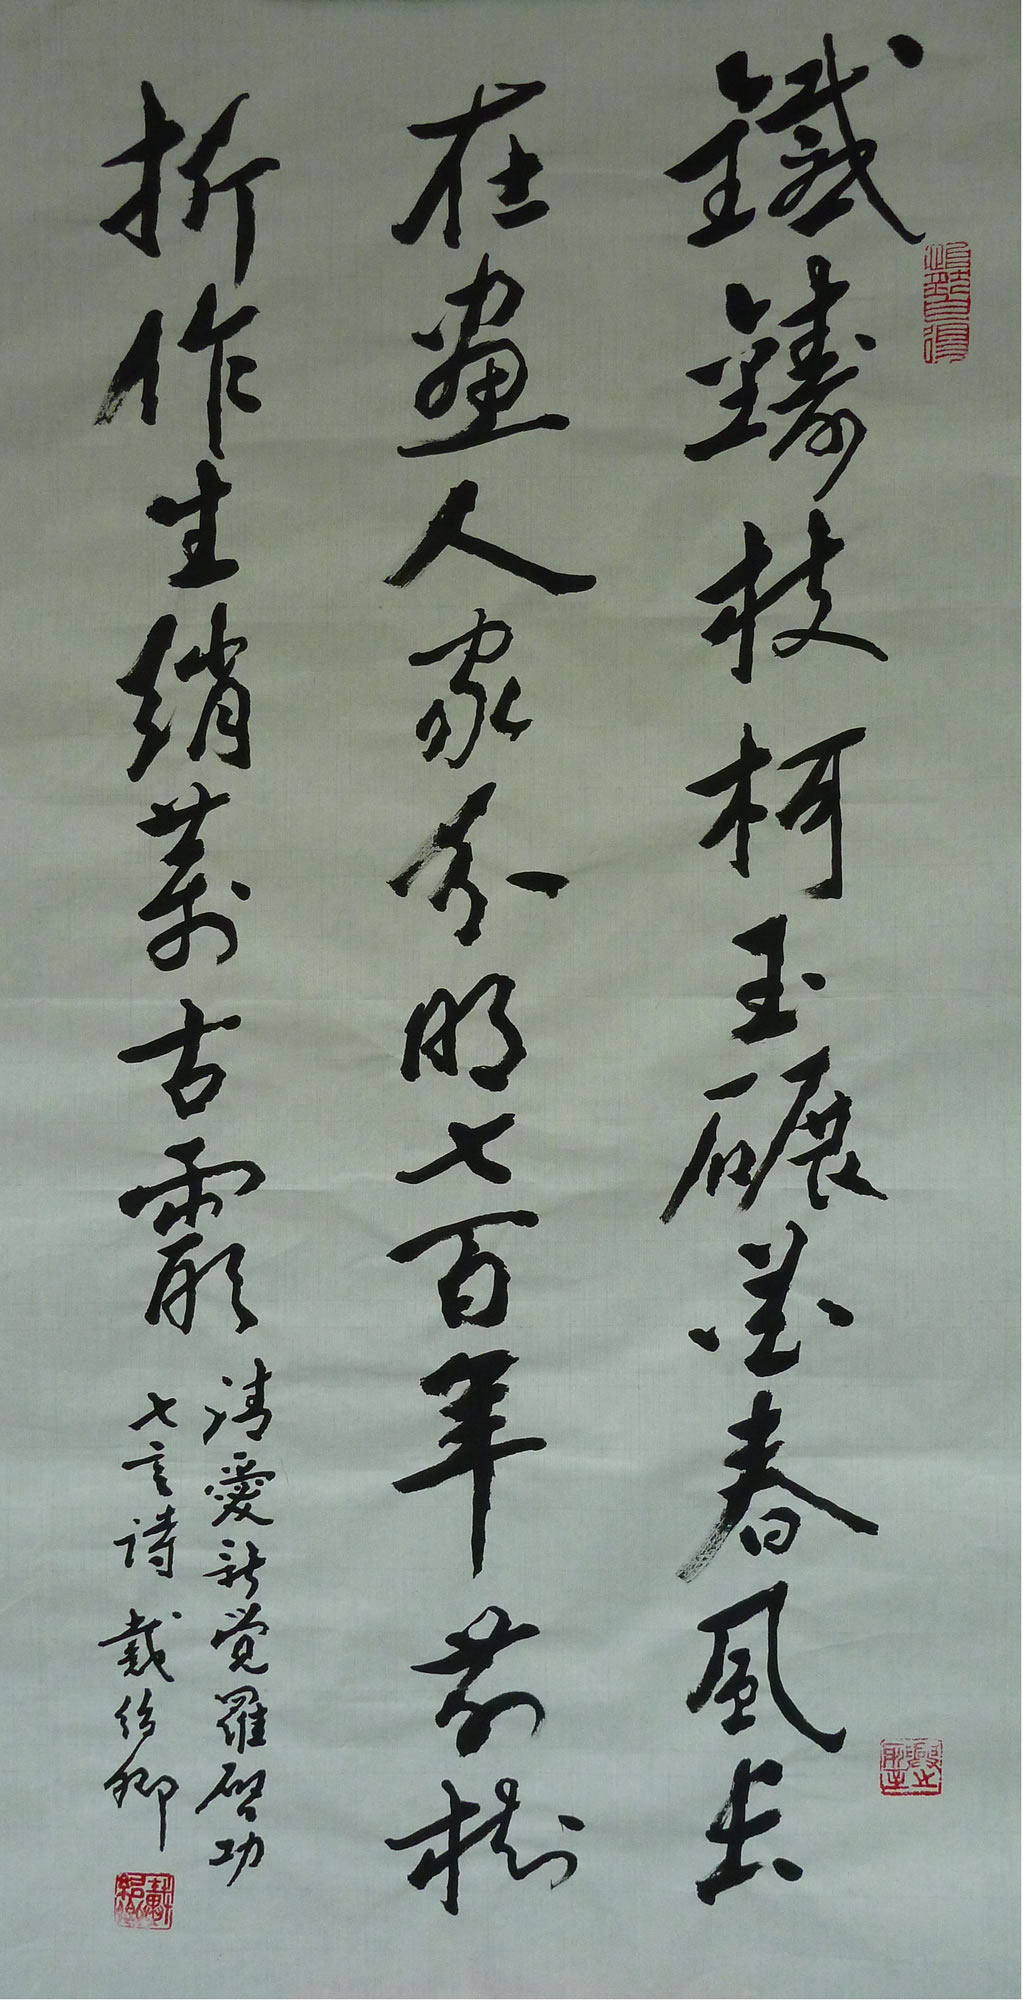 鐵鑄枝柯玉碾花春風長
在畫人家分明七百年前樹
折作生綃萬古霞
清愛新覺羅啓功
七言詩 戴紹卿